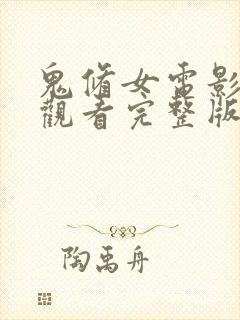 鬼脩女電影
觀看完整版
陶禹舟